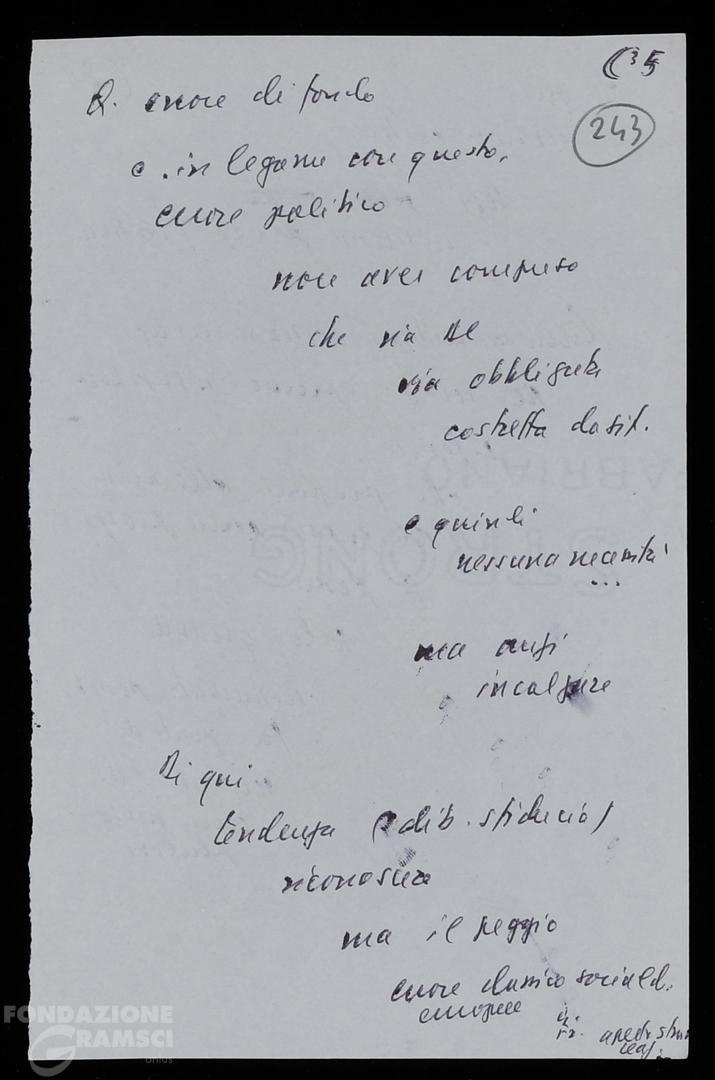 (35
243
Q. errore di fondo
e. in legame con questo,
errore politico
non aver compreso
che sia DC
sia obbligata
costretta da sit.
e quindi
nessuna necessità
...
ma anzi
incalzare
Di qui
tendenza (dib. sfiducia)
riconosciuta
ma il peggio
errore classico sociald.
europee
apre la strada
reaz.
FONDAZIONE
GRAMSCI
onlus